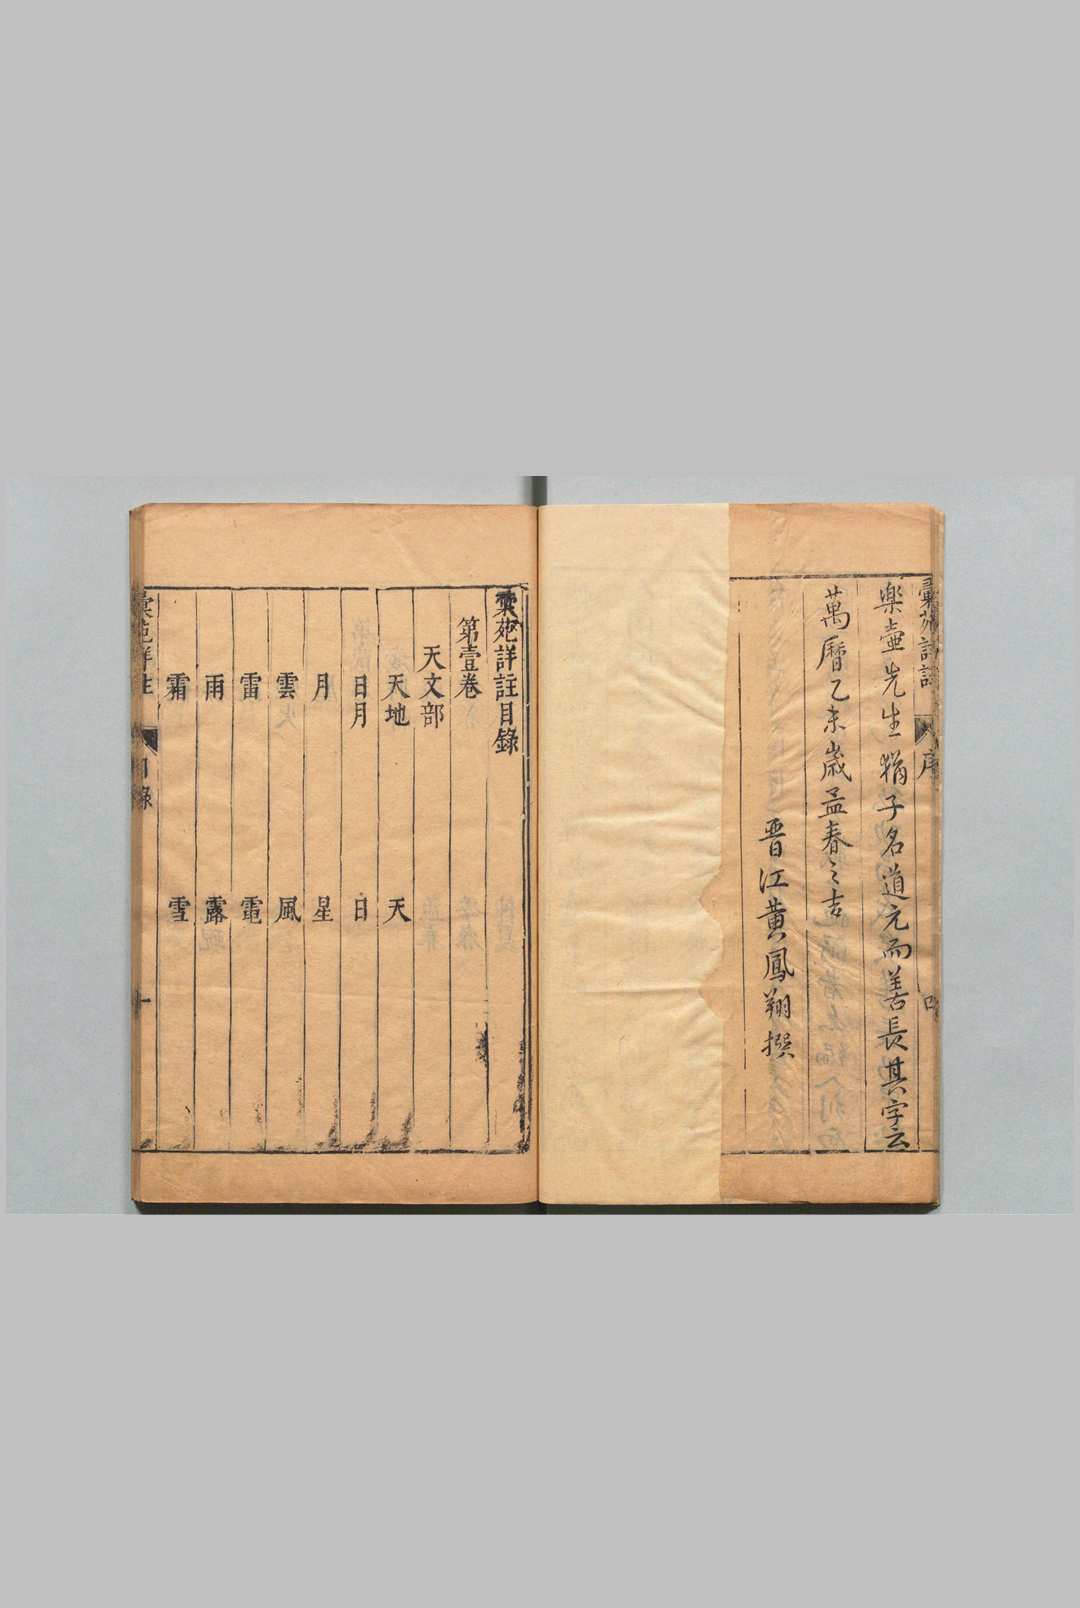 彚苑詳註
序
四
樂壷先生猶子名道元而善長其字云
萬曆乙未歲孟春之吉
晋江黄鳳翔撰
彚苑詳註目錄
第壹卷
天文部
天地
天
日月
日
月
星
雲
風
雷
電
雨
露
霜
雪
彚苑詳註
目錄
一